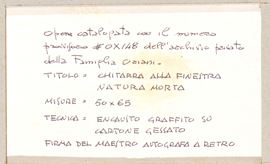 Opera catalogata con il numero
provvisorio #OX148 dell'archivio privato
della Famiglia Oriani.
TITOLO = CHITARRA ALLA FINESTRA
NATURA MORTA
MISURE = 50 x 65
TECNICA = ENCAUSTO GRAFFITO SU
CARTONE GESSATO
FIRMA DEL MAESTRO AUTOGRAFA A RETRO